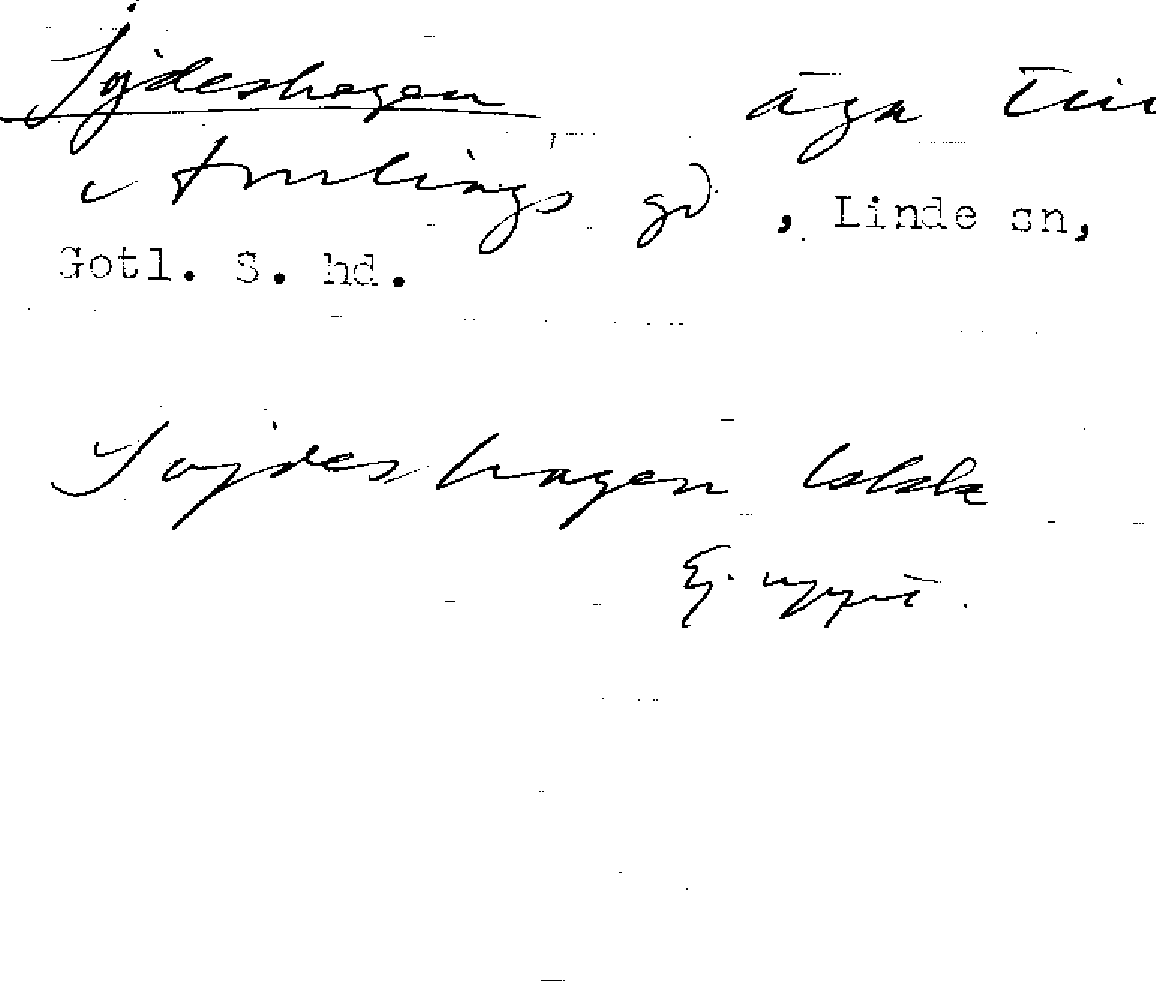 Söjdeshagen äga till
i Amlings gd , Linde sn,
Gotl. S. hd.
Söjdeshagen
Ej uppt.